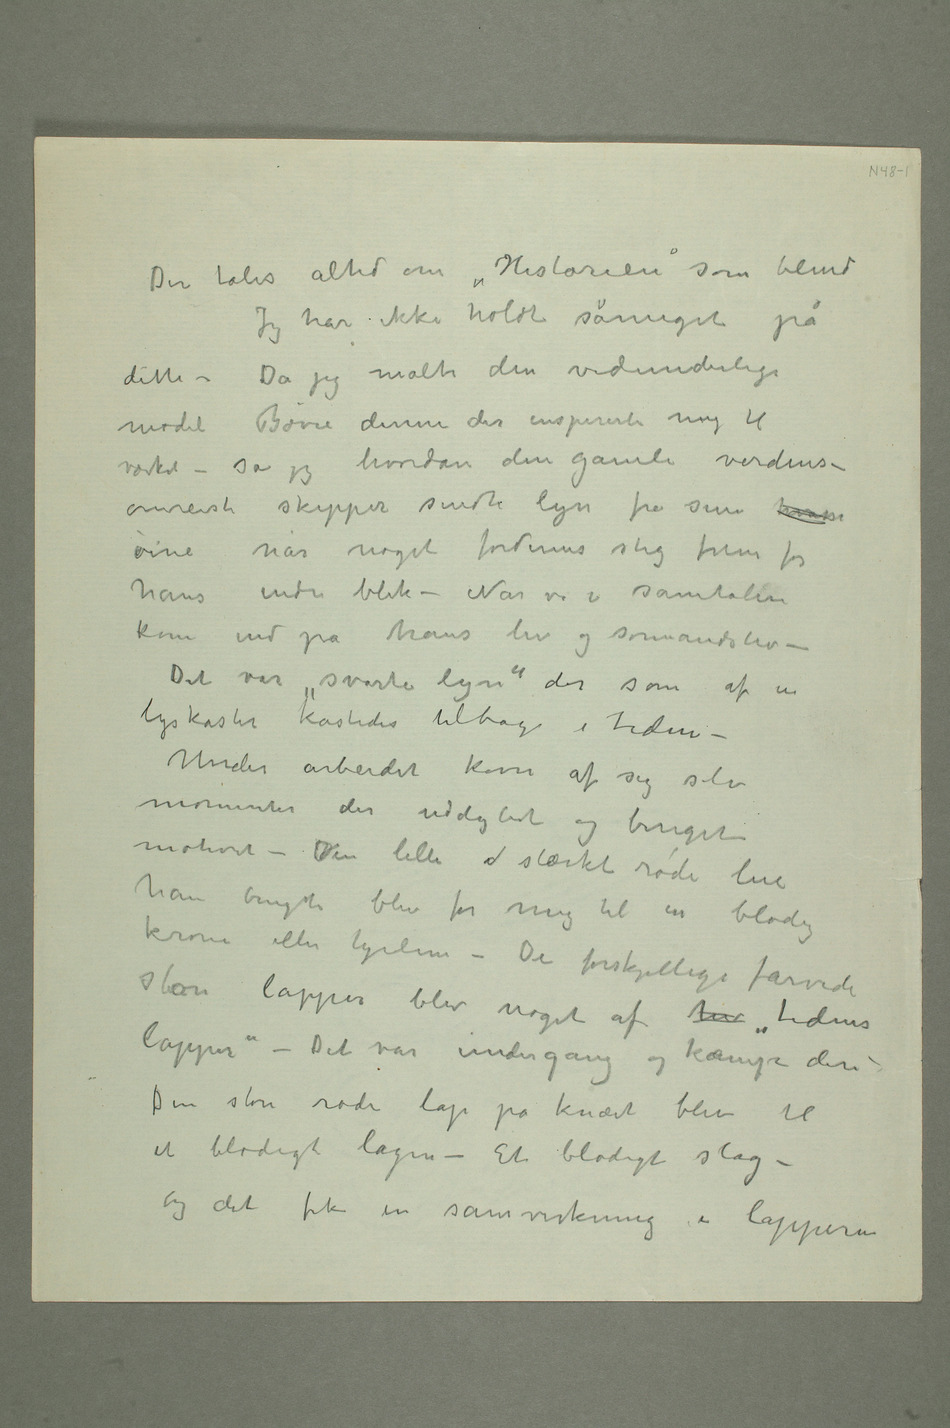 N48-1
Der tales altid om „Historien“ som blind
Jeg har ikke holdt såmeget på
dette – Da jeg malte den vidunderlige
model Bøvre denne der inspirerte mig til
værket – så jeg hvordan den gamle verdens-
omreiste skipper sendte lyn fra sine
øine når noget fordums steg frem for
hans indre blik – Når vi i samtalen
kom ind på hans liv og sømandsliv –
Det var „svarte lyn“ der som af en
lyskaster kastedes tilbage i tiden –
Under arbeidet kom af sig selv
momenter der uddybet og beriget
motivet – Den lille stærkt røde lue
han brugte blev for mig til en blodig
krone eller hjelm – De forskjellige farvede
store lapper blev noget af „tidens
lapper“ – Det var undergang og kampe deri –
Den store røde lap på knæet blev til
et blodigt lagen – Et blodigt slag –
og det fik en samvirkning i lapperne